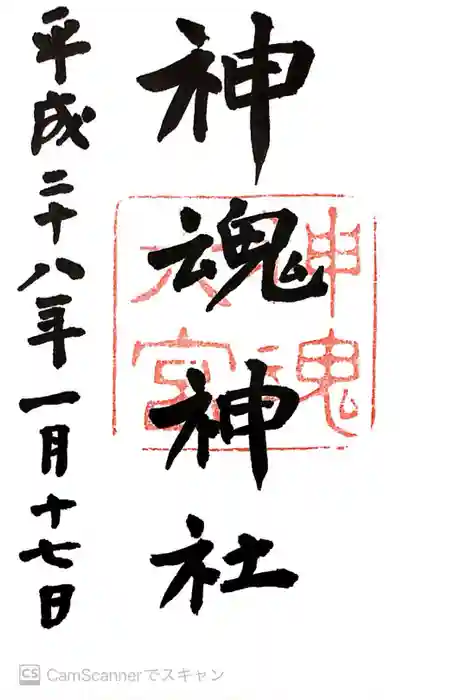 神魂神社
神魂
大宮
平成二十八年一月十七日
CS CamScannerでスキャン